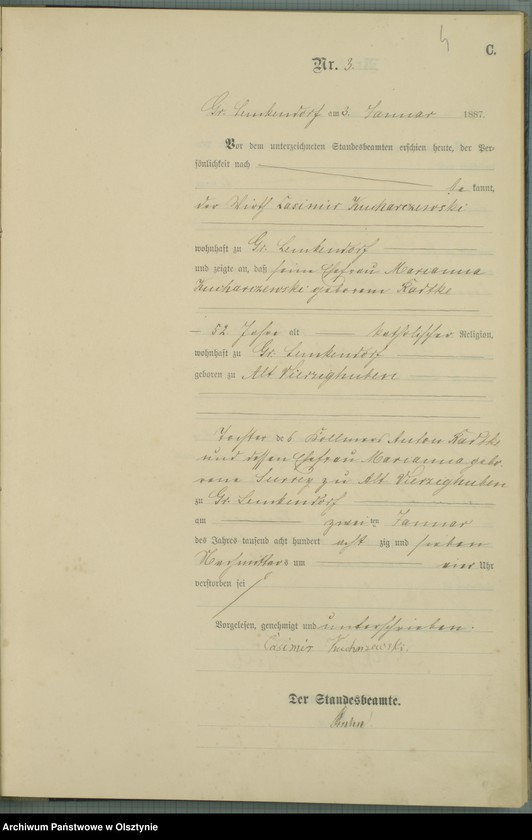 C.
Nr. 3.
Gr. Lemkendorf am 3. Januar 1887.
Vor dem unterzeichneten Standesbeamten erschien heute, der Per-
sönlichkeit nach
be kannt,
der Wirth Casimir Kucharczewski
wohnhaft zu Gr. Lemkendorf
und zeigte an, daß seine Ehefrau Marianna
Kucharczewski geborene Radtke
52 Jahre alt katholischer Religion,
wohnhaft zu Gr. Lemkendorf
geboren zu Alt Vierzighuben
Tochter des Kollmers Anton Radtke
und dessen Ehefrau Marianna gebo
rene zu Alt Vierzighuben
zu Gr. Lemkendorf
am zwei ten Januar
des Jahres tausend acht hundert acht zig und sieben
Nachmittags um vier Uhr
verstorben sei
Vorgelesen, genehmigt und unterschrieben.
Casimir
Der Standesbeamte.
Archiwum Państwowe w Olsztynie